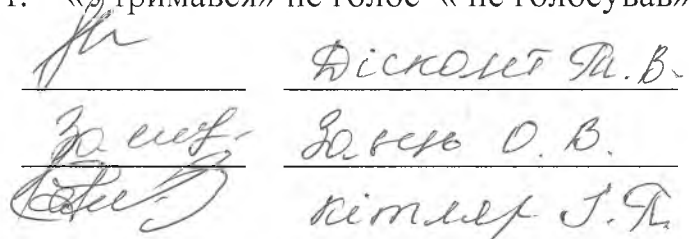 «Утримався» не голос « не голосував»
Дісконт Т. В.
Заєць О. В.
Кітляр І. П.